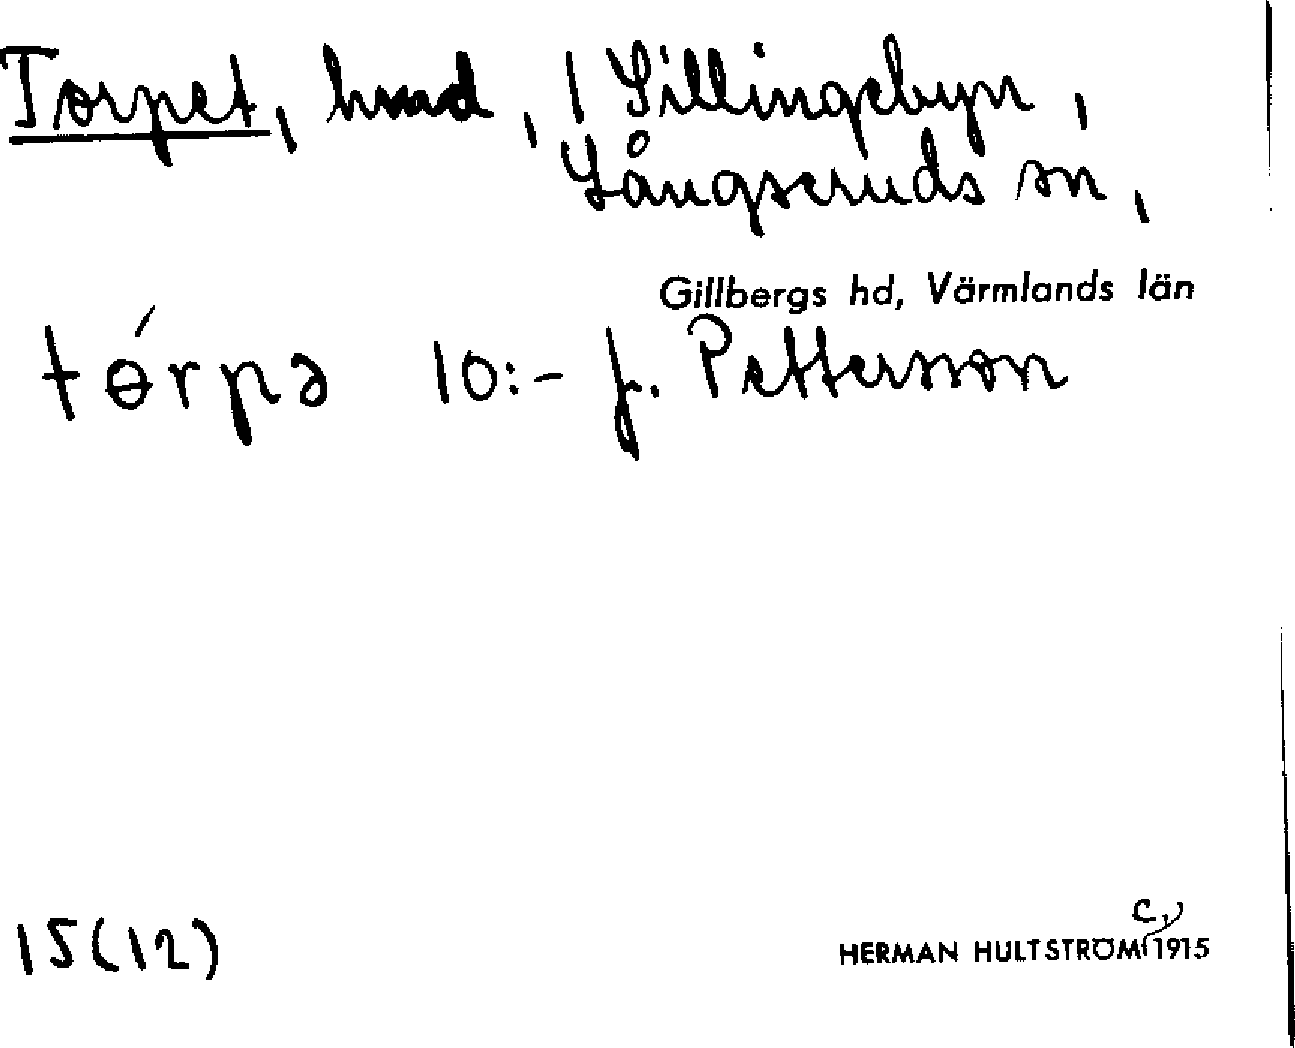 Torpet, hmd, i Sillingebyn,
Långseruds sn,
Gillbergs hd, Värmlands län
tɵ́rpə 10:- f. Pettersson
15(12)
HERMAN HULTSTRÖM c, 1915